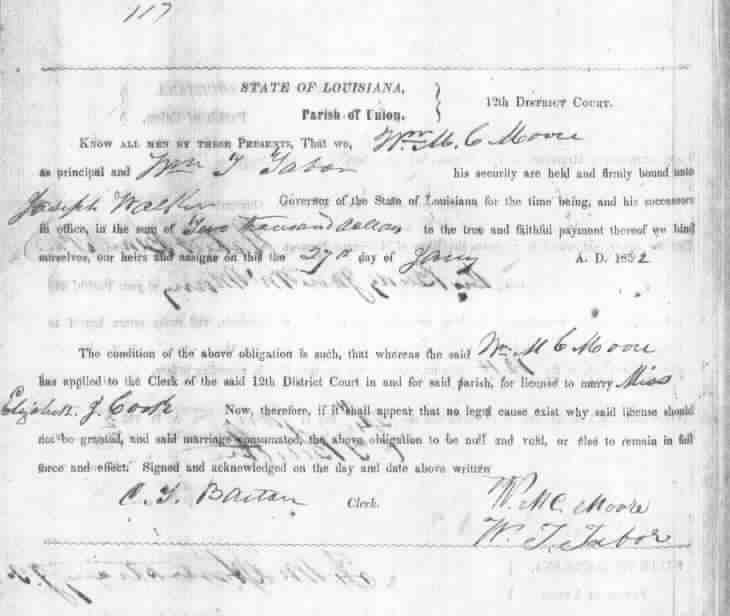 117
STATE OF LOUISIANA,
Parish of Union.
12th District Court.
Know all men by these presents, That we, Wm. M. C Moore
as principal and Wm T Tabor his security are held and firmly bound unto
Joseph Walker Governor of the State of Louisiana for the time being, and his successors
in office, in the sum of Two thousand dollars to the true and faithful payment thereof we bind
ourselves, our heirs and assigns on this the 27th day of Jany A. D. 1852
The condition of the above obligation is such, that whereas the said Wm. M C Moore
has applied to the Clerk of the said 12th District Court in and for said parish, for license to marry Miss
Elizabeth J Cook Now, therefore, if it shall appear that no legal cause exist why said license should
not be granted, and said marriage consumated, the above obligation to be null and void, or else to remain in full
force and effect. Signed and acknowledged on the day and date above written
Clerk.
W. M C. Moore
W. T. Tabor